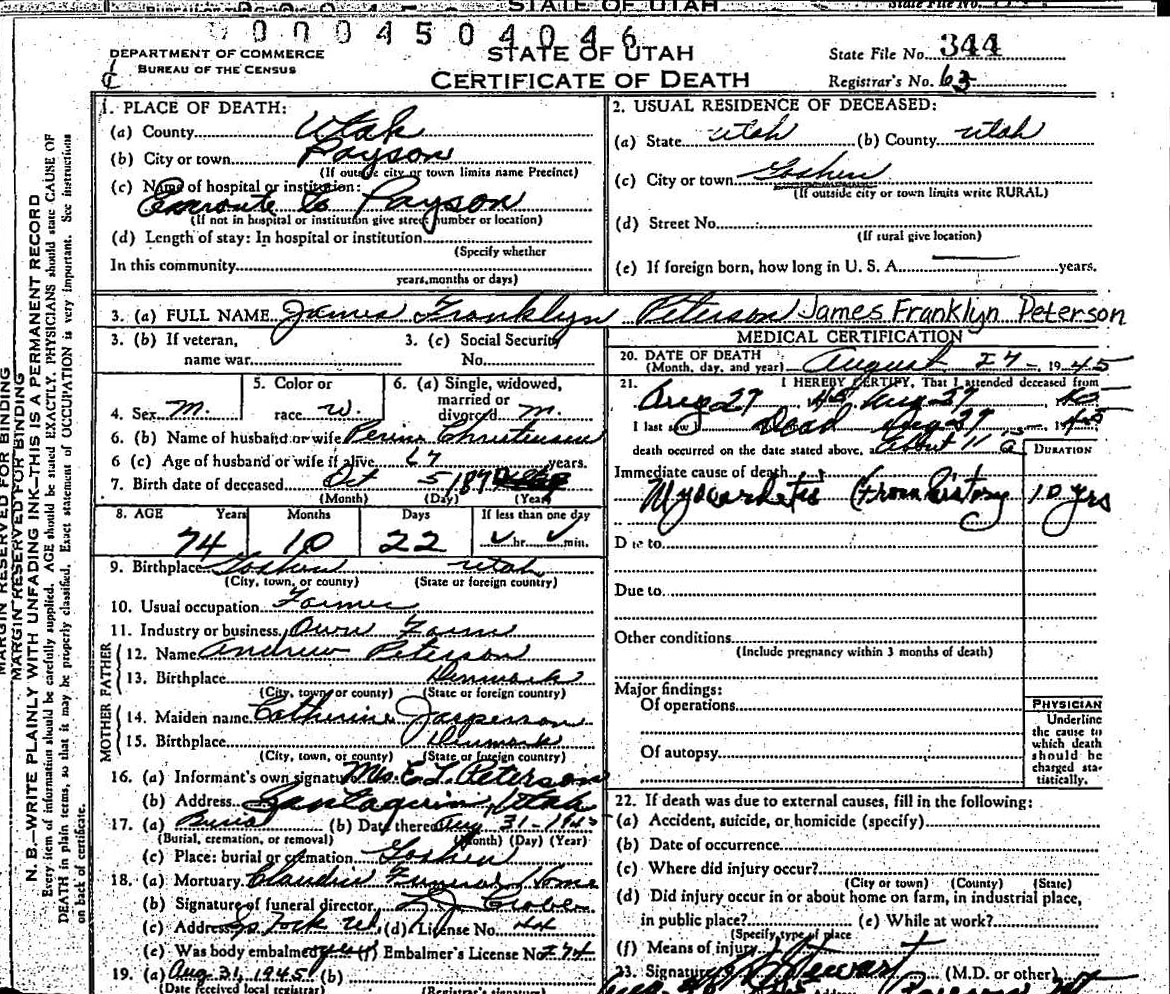 STATE OF UTAH
State File No.
0 0 0 4 5 0 4 0 4 6
DEPARTMENT OF COMMERCE
BUREAU OF THE CENSUS
STATE OF UTAH
CERTIFICATE OF DEATH
State File No. 344
Registrar's No. 63
MARGIN RESERVED FOR BINDING
MARGIN RESERVED FOR BINDING
N. B.—WRITE PLAINLY WITH UNFADING INK—THIS IS A PERMANENT RECORD
Every item of information should be carefully supplied. AGE should be stated EXACTLY. PHYSICIANS should state CAUSE OF
DEATH in plain terms, so that it may be properly classified. Exact statement of OCCUPATION is very important. See instructions
on back of certificate.
1. PLACE OF DEATH:
(a) County Utah
(b) City or town Payson
(If outside city or town limits name Precinct)
(c) Name of hospital or institution:
Enroute to Payson
(If not in hospital or institution give street number or location)
(d) Length of stay: In hospital or institution
(Specify whether
In this community
years, months or days)
2. USUAL RESIDENCE OF DECEASED:
(a) State Utah (b) County Utah
(c) City or town Goshen
(If outside city or town limits write RURAL)
(d) Street No.
(If rural give location)
(e) If foreign born, how long in U. S. A. years.
3. (a) FULL NAME James Franklyn Peterson James Franklyn Peterson
3. (b) If veteran,
name war
3. (c) Social Security
No.
4. Sex M.
5. Color or
race W.
6. (a) Single, widowed,
married or
divorced M.
6. (b) Name of husband or wife Christensen
6 (c) Age of husband or wife if alive 67 years.
7. Birth date of deceased Oct 5
(Month) (Day) (Year)
8. AGE Years Months Days If less than one day
74 10 22 hr. min.
9. Birthplace Goshen Utah
(City, town, or county) (State or foreign country)
10. Usual occupation Farmer
11. Industry or business Own Farm
FATHER
12. Name Andrew Peterson
13. Birthplace Denmark
(City, town or county) (State or foreign country)
MOTHER
14. Maiden name Catherine Jasperson
15. Birthplace Denmark
(City, town or county) (State or foreign country)
16. (a) Informant's own signature Mrs. E. L. Peterson
(b) Address Santaquin, Utah
17. (a) Burial (b) Date thereof Aug 31-1945
(Burial, cremation, or removal) (Month) (Day) (Year)
(c) Place: burial or cremation Goshen
18. (a) Mortuary Claudin Funeral Home
(b) Signature of funeral director
(c) Address Sp Fork Ut. (d) License No. 44
(e) Was body embalmed yes (f) Embalmer's License No. 274
19. (a) Aug 31, 1945 (b)
(Date received local registrar) (Registrar's signature)
MEDICAL CERTIFICATION
20. DATE OF DEATH
(Month, day, and year) August 27 - 1945
21. I HEREBY CERTIFY, That I attended deceased from
Aug 27 45 Aug 27 45
I last saw h Dead Aug 27 1945
death occurred on the date stated above, at About 11 a
DURATION
Immediate cause of death
Myocarditis (from history) 10 yrs
Due to
Due to
Other conditions
(Include pregnancy within 3 months of death)
Major findings:
Of operations
Of autopsy
PHYSICIAN
Underline
the cause to
which death
should be
charged sta-
tistically.
22. If death was due to external causes, fill in the following:
(a) Accident, suicide, or homicide (specify)
(b) Date of occurrence
(c) Where did injury occur?
(City or town) (County) (State)
(d) Did injury occur in or about home on farm, in industrial place,
in public place? (e) While at work?
(Specify type of place
(f) Means of injury
23. Signature Stewart (M.D. or other)